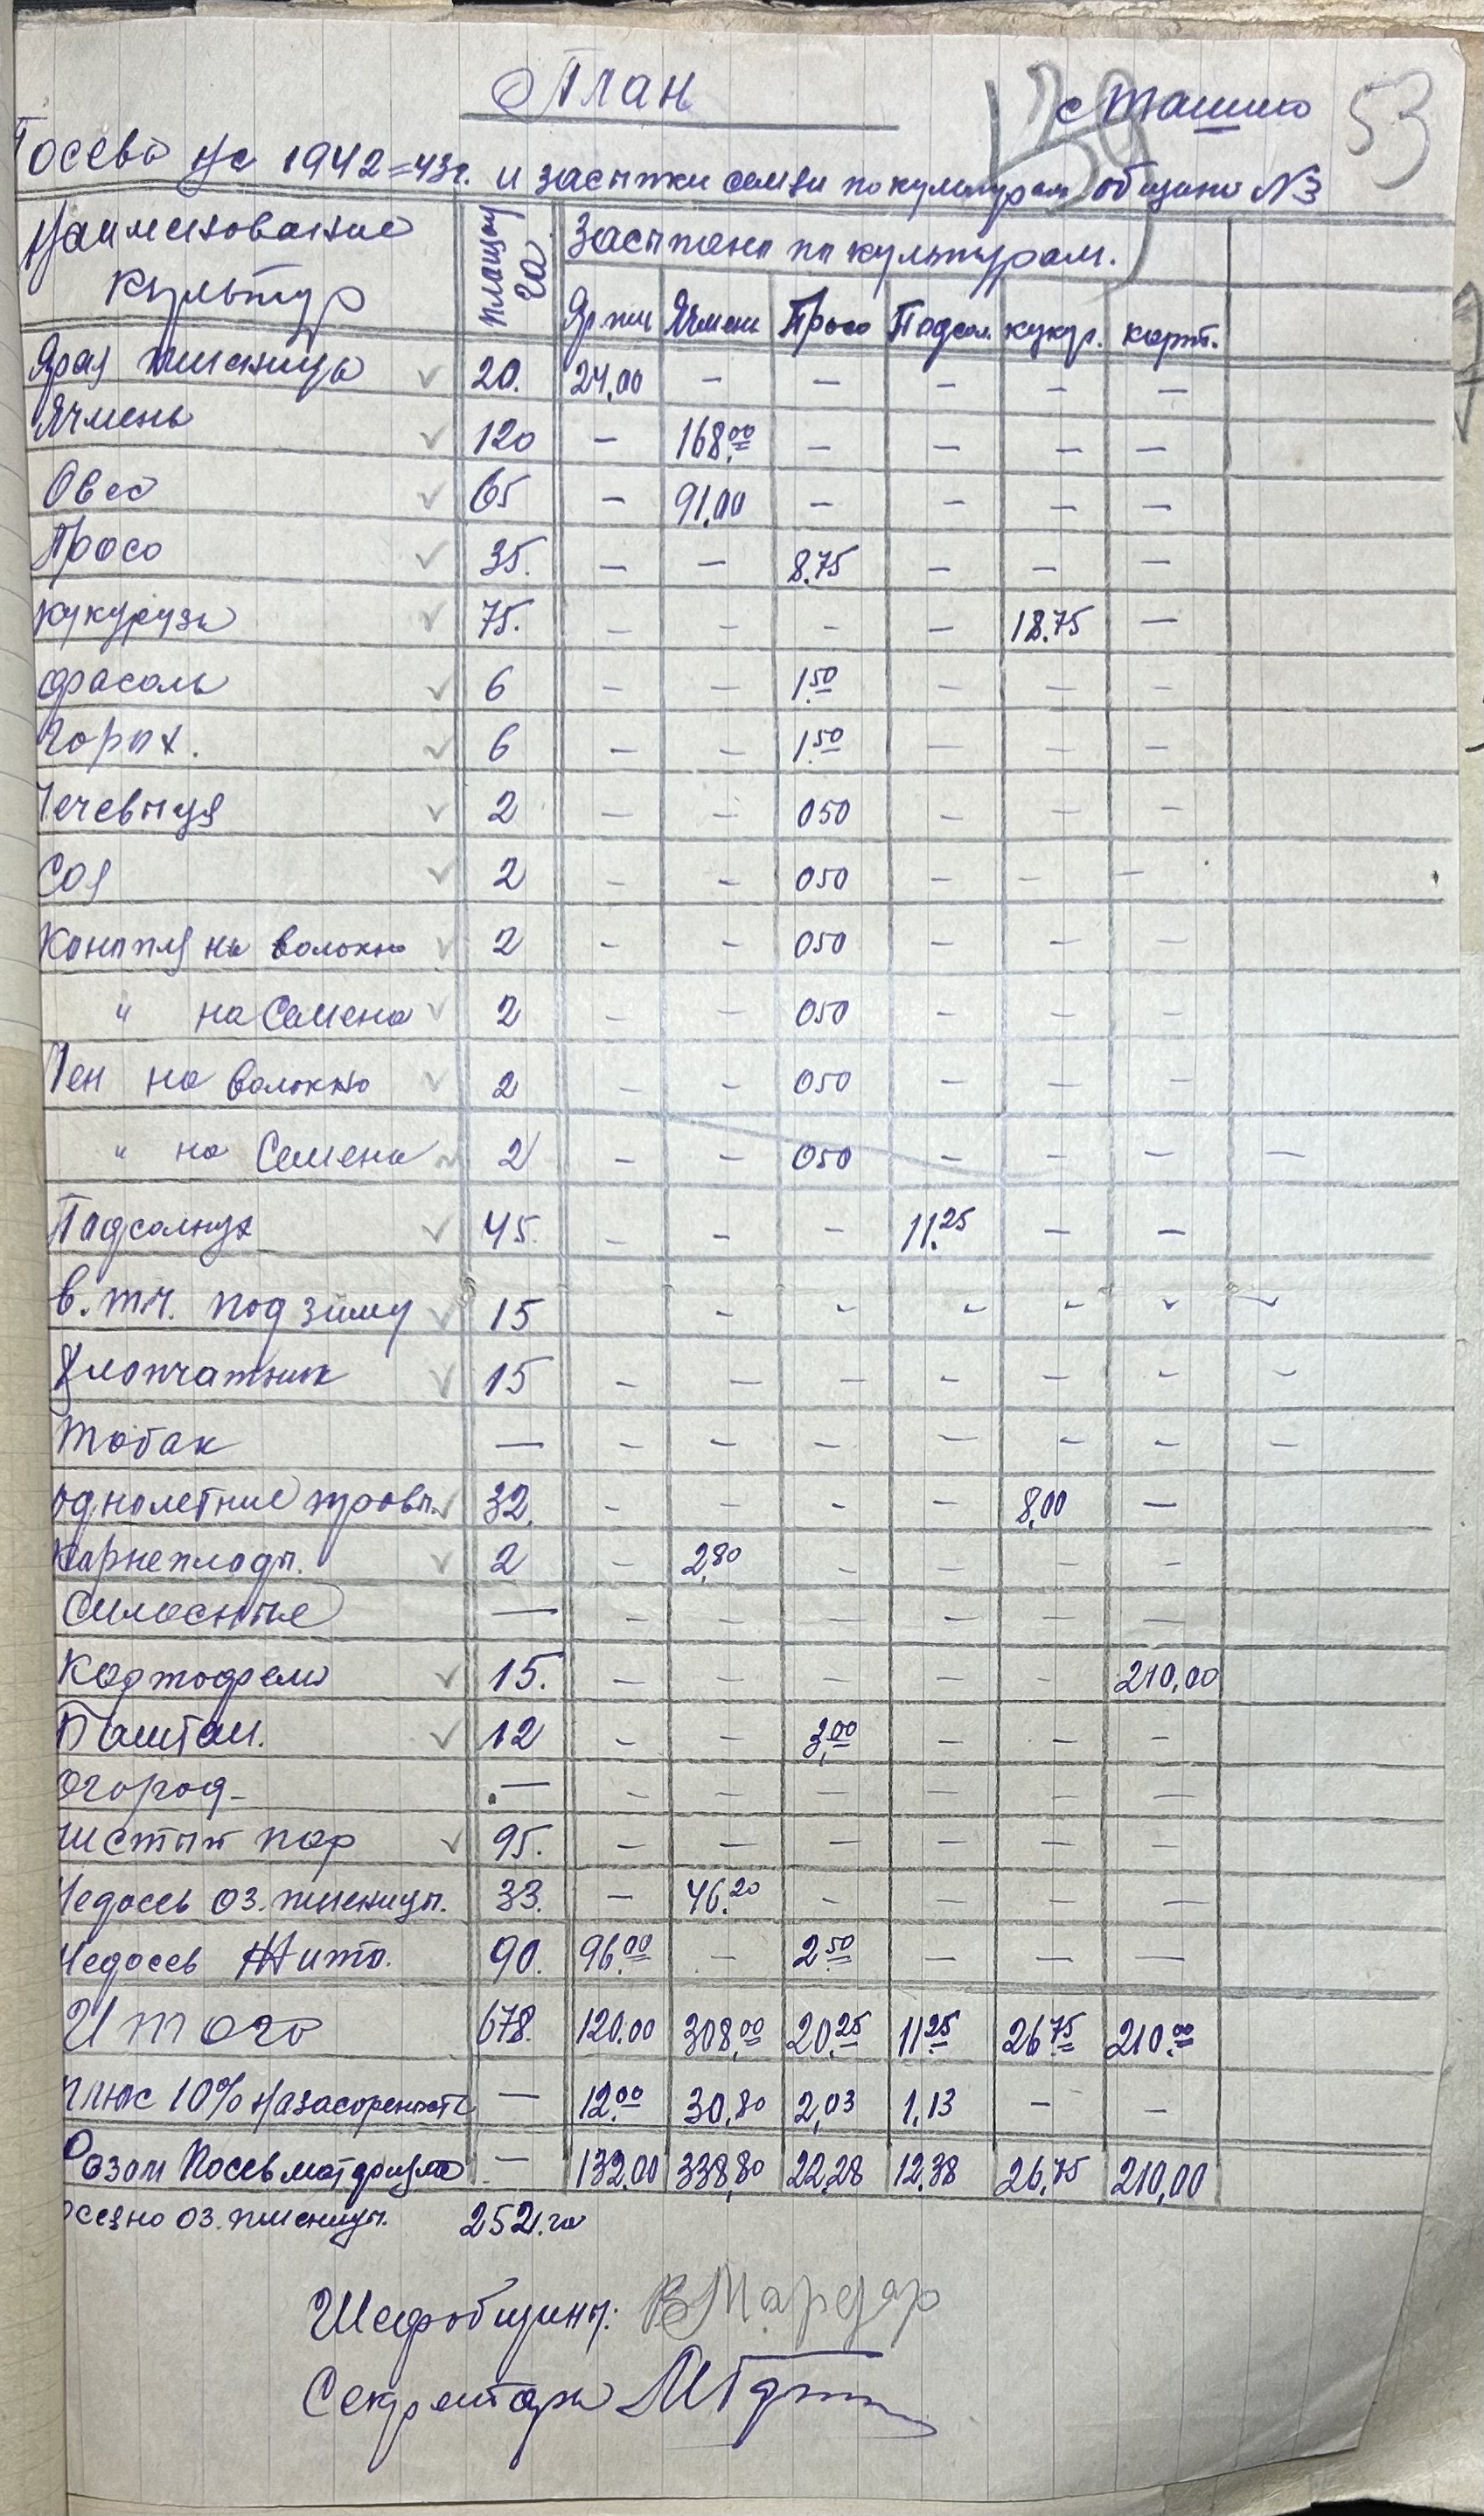 План
с Ташино 53
Посева на 1942=43г. и засыпки семян по культурам общино №3
Наименование культур площадь га Засыпано по культурам.
Яр. пш Ячмень Просо Подсол. кукур. карт.
Ярая пшеница ✓ 20. 24,00 – – – – –
Ячмень ✓ 120 – 168,00 – – – –
Овес ✓ 65 – 91,00 – – – –
Просо ✓ 35. – – 8,75 – – –
кукуруза ✓ 75. – – – – 18.75 –
фасоль ✓ 6 – – 1.50 – – –
Горох. ✓ 6 – – 1.50 – – –
Чечевиця ✓ 2 – – 050 – – –
Соя ✓ 2 – – 050 – – –
Конопля на волокно ✓ 2 – – 050 – – –
" на Семена ✓ 2 – – 050 – – –
Лен на волокно ✓ 2 – – 050 – – –
" на Семена ✓ 2 – – 050 – – – –
Подсолнух ✓ 45. – – – 11.25 – –
в.т.ч. под зиму ✓ 15 – – – – – –
Хлопчатник ✓ 15 – – – – – – –
Тобак — – – – – – – –
однолетние травы. ✓ 32. – – – – 8,00 –
Карнеплоды. ✓ 2 – 2,80 – – – –
Силосные — – – – – – –
Картофель ✓ 15. – – – – – 210,00
Баштан. ✓ 12 – – 3,00 – – –
Огород – — – – – – – –
чистый пар ✓ 95. – – – – – –
Недосев оз. пшеницы. 33. – 46.20 – – – –
Недосев Жито. 90. 96.00 – 2.50 – – –
Итого 678. 120.00 308,00 20.25 11.25 26.75 210.00
плюс 10% на засоренность — 12.00 30,80 2,03 1,13 – –
Разом Посевматдриуло — 132.00 338,80 22,28 12.38 26,75 210,00
осеяно оз. пшеницы. 252.га
Шефобщины:
Секретарь